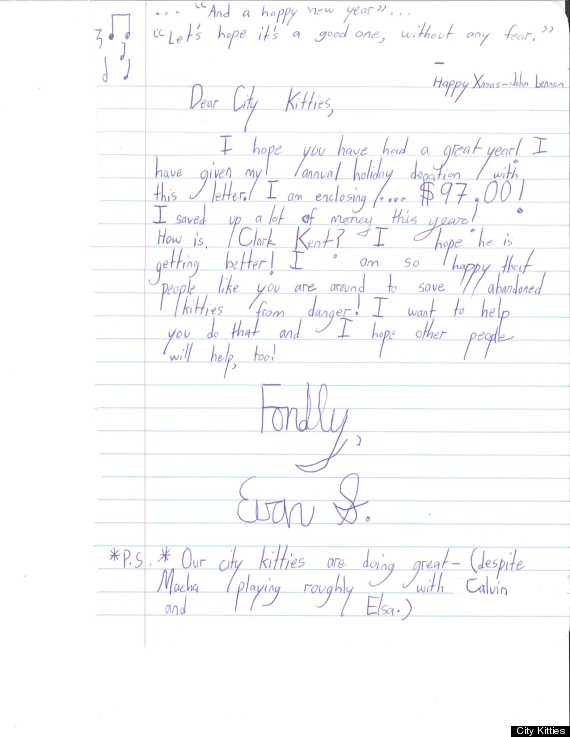 ... "And a happy new year"...
"Let's hope it's a good one, without any fear."
—
Happy Xmas-John Lennon
Dear City Kitties,
I hope you have had a great year! I
have given my annual holiday donation with
this letter! I am enclosing .... $97.00!
I saved up a lot of money this year!
How is Clark Kent? I hope he is
getting better! I am so happy that
people like you are around to save abandoned
kitties from danger! I want to help
you do that and I hope other people
will help, too!
Fondly,
Evan S.
*P.S.* Our city kitties are doing great- (despite
Macha playing roughly with Calvin
and Elsa.)
City Kitties